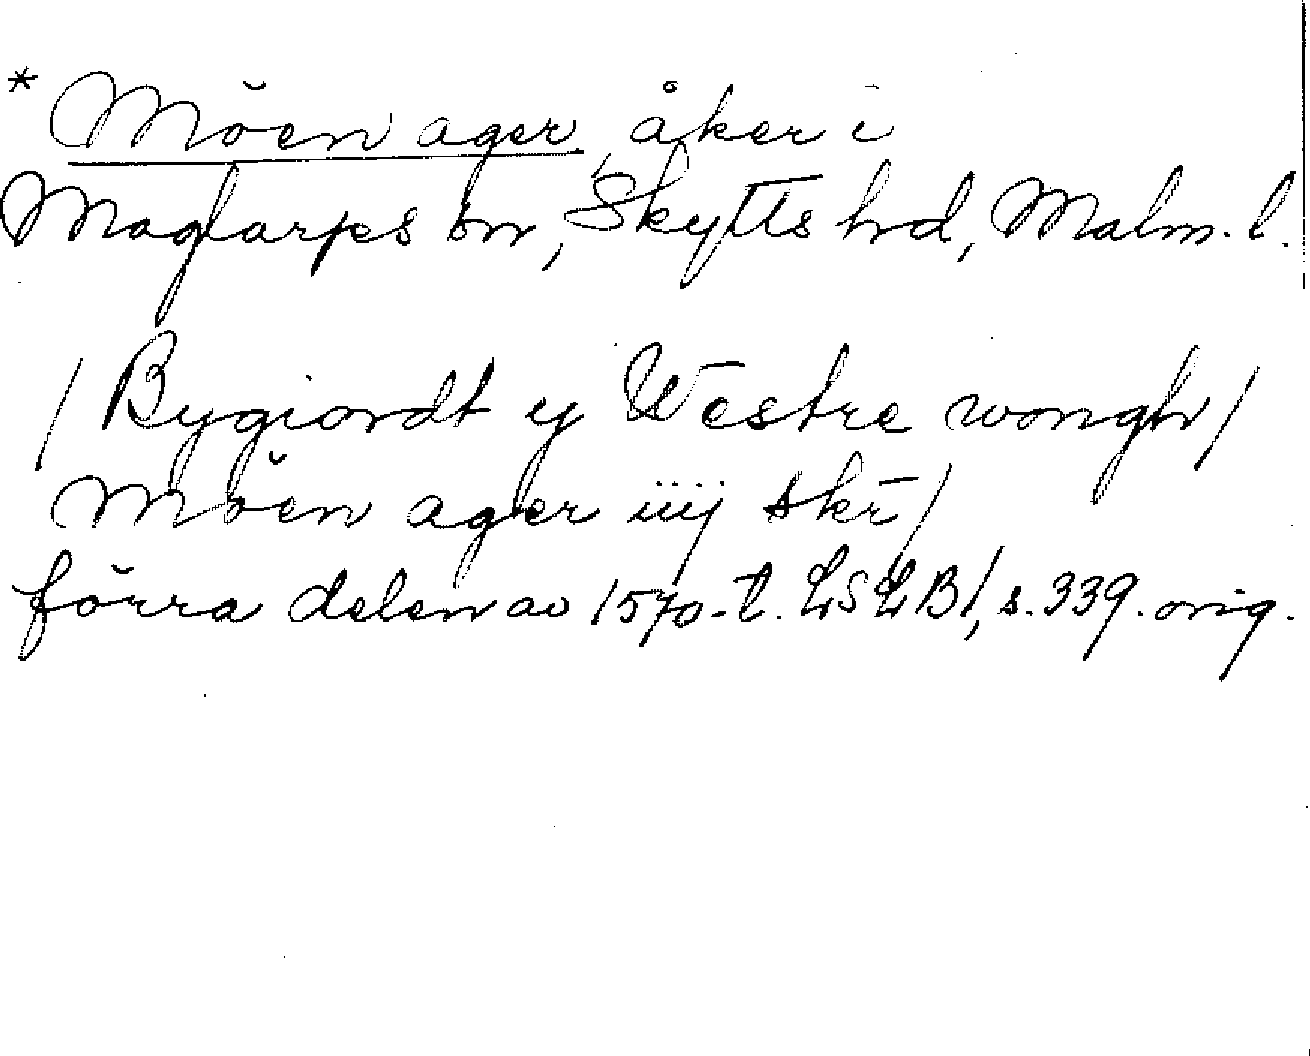 * Mŏen ager, åker i
Maglarps sn, Skytts hrd, Malm. l.
/ Bygiordt y Westre wongh /
Mŏen ager iiij skr /
förra delen av 1570-t. LSLB 1, s. 339. orig.